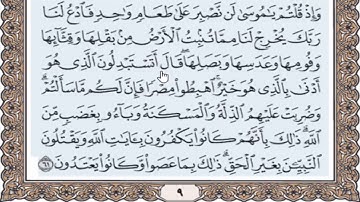 وَإِذْ قُلْتُمْ يَٰمُوسَىٰ لَن نَّصْبِرَ عَلَىٰ طَعَامٍ وَٰحِدٍ فَٱدْعُ لَنَا
رَبَّكَ يُخْرِجْ لَنَا مِمَّا تُنۢبِتُ ٱلْأَرْضُ مِنۢ بَقْلِهَا وَقِثَّآئِهَا
وَفُومِهَا وَعَدَسِهَا وَبَصَلِهَا ۖ قَالَ أَتَسْتَبْدِلُونَ ٱلَّذِى هُوَ
أَدْنَىٰ بِٱلَّذِى هُوَ خَيْرٌ ۚ ٱهْبِطُوا۟ مِصْرًا فَإِنَّ لَكُم مَّا سَأَلْتُمْ ۗ
وَضُرِبَتْ عَلَيْهِمُ ٱلذِّلَّةُ وَٱلْمَسْكَنَةُ وَبَآءُو بِغَضَبٍ مِّنَ
ٱللَّهِ ۗ ذَٰلِكَ بِأَنَّهُمْ كَانُوا۟ يَكْفُرُونَ بِـَٔايَٰتِ ٱللَّهِ وَيَقْتُلُونَ
ٱلنَّبِيِّـۧنَ بِغَيْرِ ٱلْحَقِّ ۗ ذَٰلِكَ بِمَا عَصَوا۟ وَّكَانُوا۟ يَعْتَدُونَ ٦١
٩